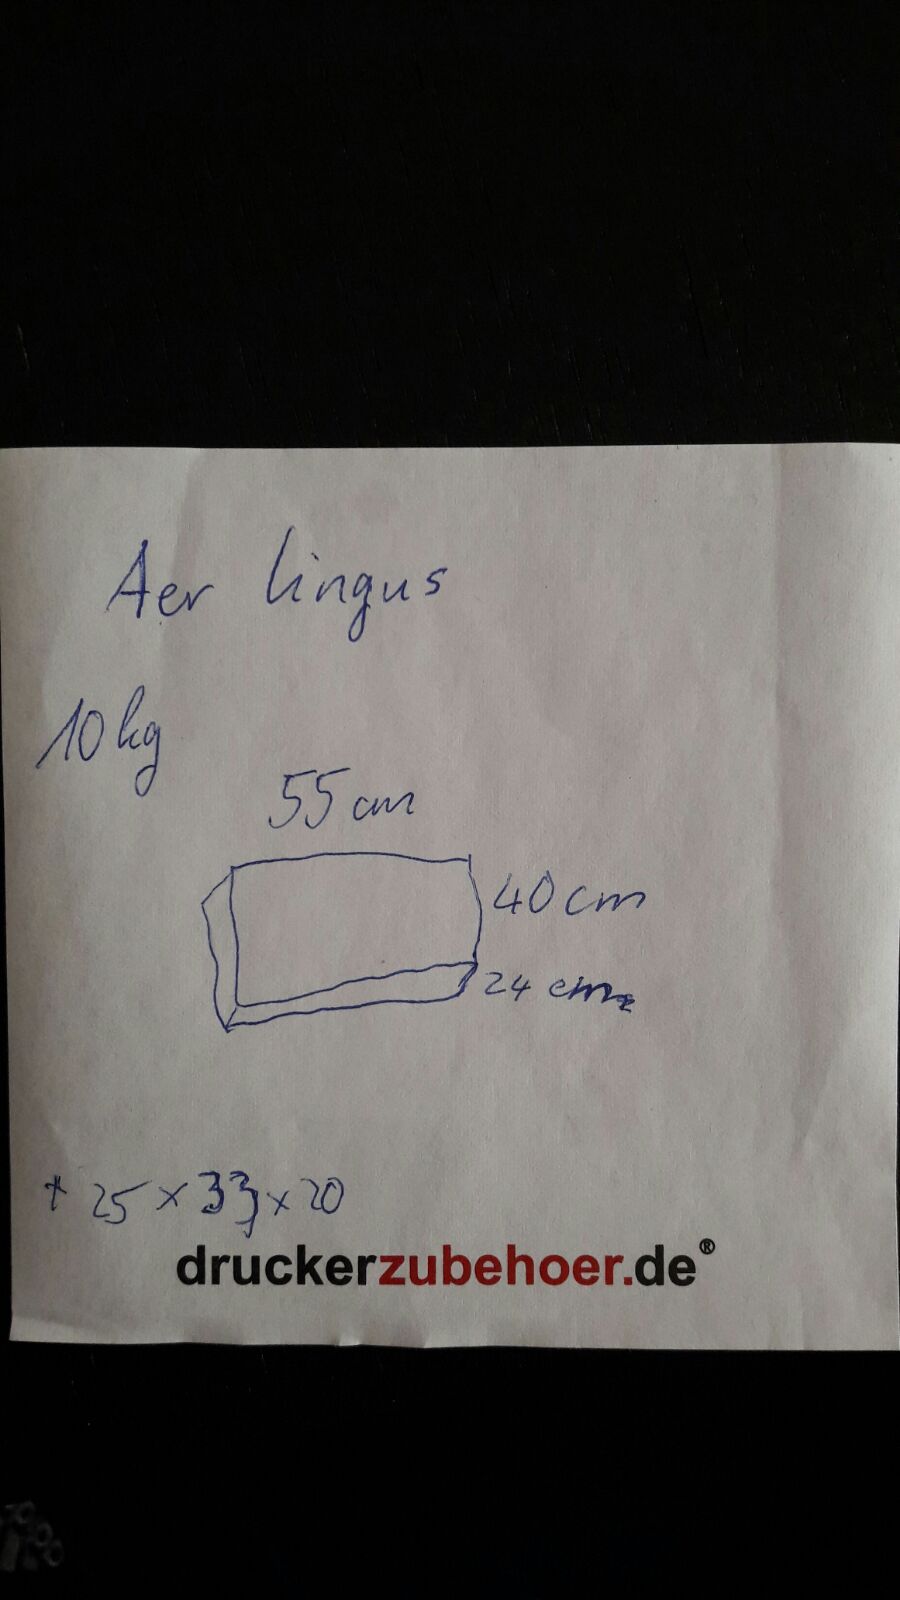 Aer lingus
10kg
55 cm
40 cm
24 cm
+ 25 x 33 x 20
druckerzubehoer.de®